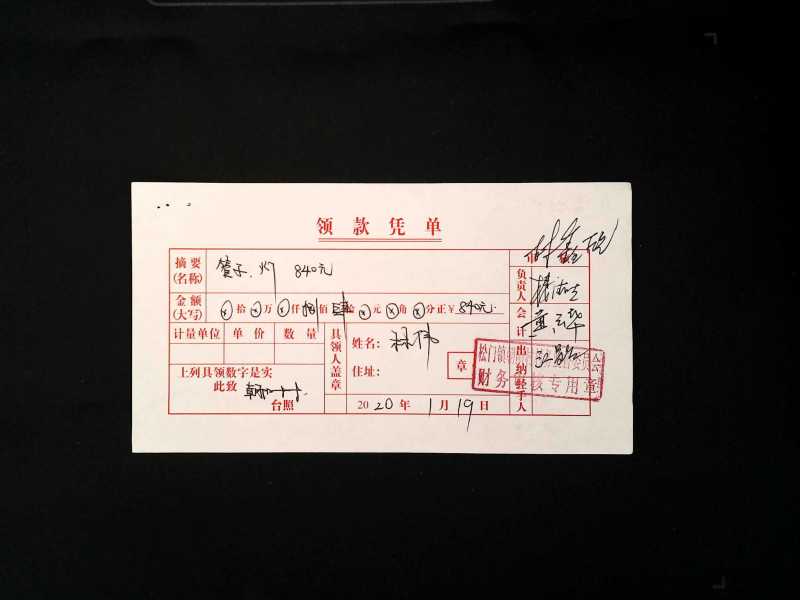 领款凭单
摘要
(名称)
管子、灯 840元
金额
(大写)
ⓧ拾ⓧ万ⓧ仟捌佰肆拾ⓧ元ⓧ角ⓧ分正￥840元
计量单位 单价 数量
具领人盖章
姓名：林伟
住址：
章
上列具领数字是实
此致
台照
2020年1月19日
负责人
会计
出纳
经手人
财务 核专用章